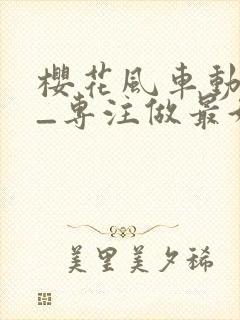 櫻花風車動
_專注做最
美里美夕稀